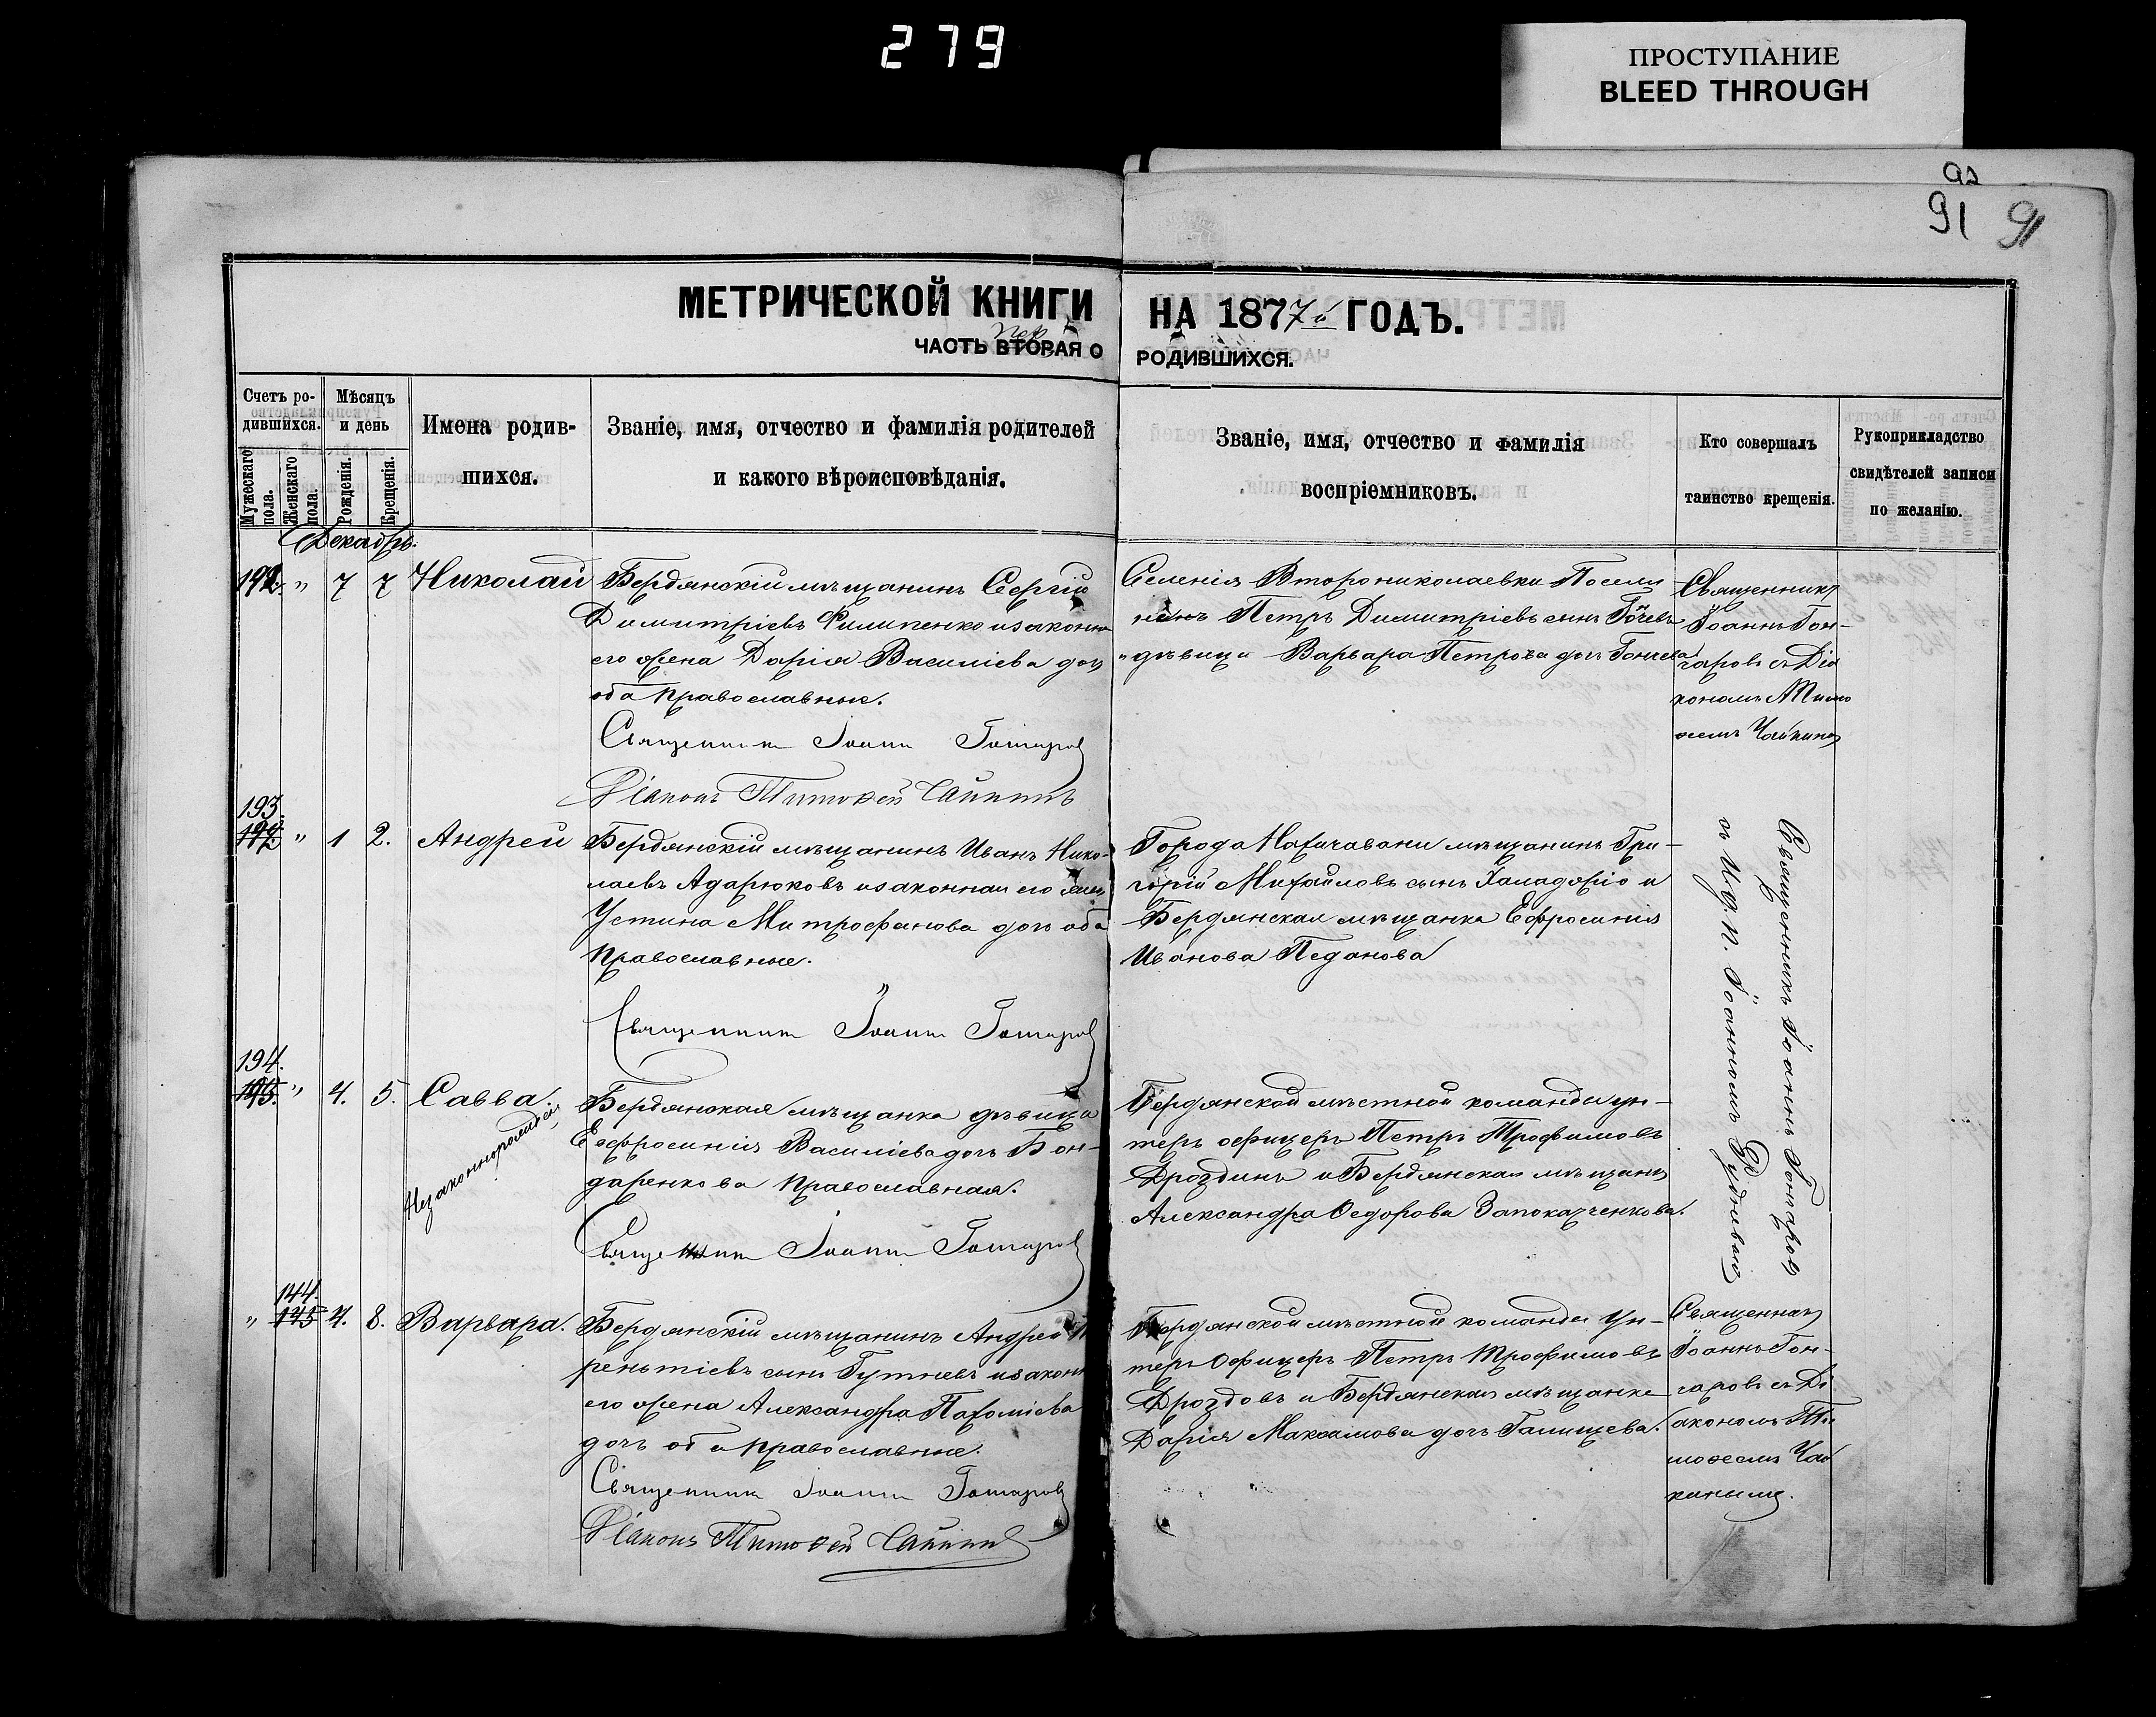 279
ПРОСТУПАНИЕ
BLEED THROUGH
92
91 91
МЕТРИЧЕСКОЙ КНИГИ НА 1877й ГОДЪ.
пер
ЧАСТЬ ВТОРАЯ О РОДИВШИХСЯ.
Счетъ ро-
дившихся.
Мужескаго пола.
Женскаго пола.
Мѣсяцъ
и день
Рожденія.
Крещенія.
Имена родив-
шихся.
Званіе, имя, отчество и фамилія родителей
и какого вѣроисповѣданія.
Званіе, имя, отчество и фамилія
воспріемниковъ.
Кто совершалъ
таинство крещенія.
Рукоприкладство
свидѣтелей записи
по желанію.
Декабрь.
192. " 7 7 Николай
Бердянскій мѣщанинъ Сергій
Димитріевъ Филипенко и законна
его жена Дарія Василіева доч
оба православные.
Священникъ Іоаннъ Гончаровъ
Діаконъ Тимоѳей Чайкинъ
Селенія Второниколаевки Посели
нинъ Петръ Димитріевъ сынъ
" дѣвица Варвара Петрова дочъ Гончева
Священникъ
Іоаннъ Гон-
чаровъ съ Діа
кономъ Тимо
ѳеемъ Чайкинъ
193.
" 1 2. Андрей
Бердянскій мѣщанинъ Иванъ Нико-
лаевъ Адарюковъ и законная его жена
Устина Митрофанова дочъ оба
православные.
Священникъ Іоаннъ Гончаровъ
Города Нахичавани мѣщанинъ Гри-
горій Михайловъ сынъ Халаджіо и
Бердянская мѣщанка Ефросинія
Иванова Педанова
Священникъ Іоаннъ Гончаровъ
съ И. д. п. Іоанномъ
194.
" 4. 5. Савва.
Незаконнорожден
Бердянская мѣщанка дѣвица
Евфросинія Василіева дочъ Бон-
даренкова православная.
Священникъ Іоаннъ Гончаровъ
Бердянской мѣстной команды ун-
теръ офицеръ Петръ Трофимовъ
Дроздинъ и Бердянская мѣщанка
Александра Ѳедорова
144.
" 145 4. 8. Варвара.
Бердянскій мѣщанинъ Андрей
рентіевъ сынъ Гутневъ и закон
его жена Александра Пахоміева
дочъ оба православные.
Священникъ Іоаннъ Гончаровъ
Діаконъ Тимоѳей Чайкинъ
Бердянской мѣстной команды Ун-
теръ Офицеръ Петръ Трофимовъ
Дроздовъ и Бердянская мѣщанка
Дарія Максимова дочъ Галищева.
Священникъ
Іоаннъ Гон-
чаровъ съ Ді
акономъ Ти
моѳеемъ Чай
кинымъ.